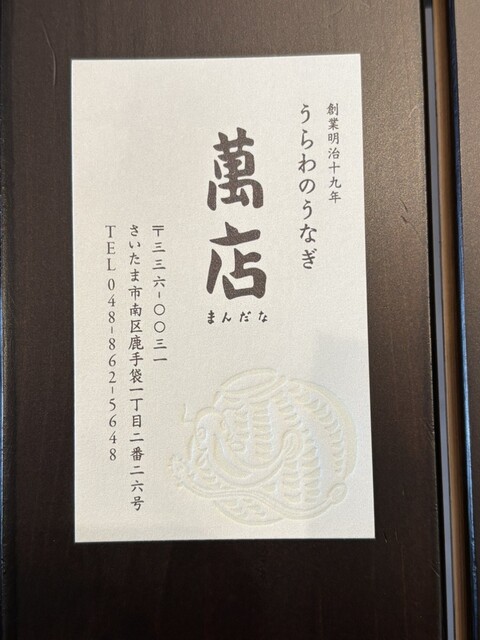 創業明治十九年
うらわのうなぎ
萬店
まんだな
〒三三六-〇〇三一
さいたま市南区鹿手袋一丁目二番二六号
TEL 048-862-5648